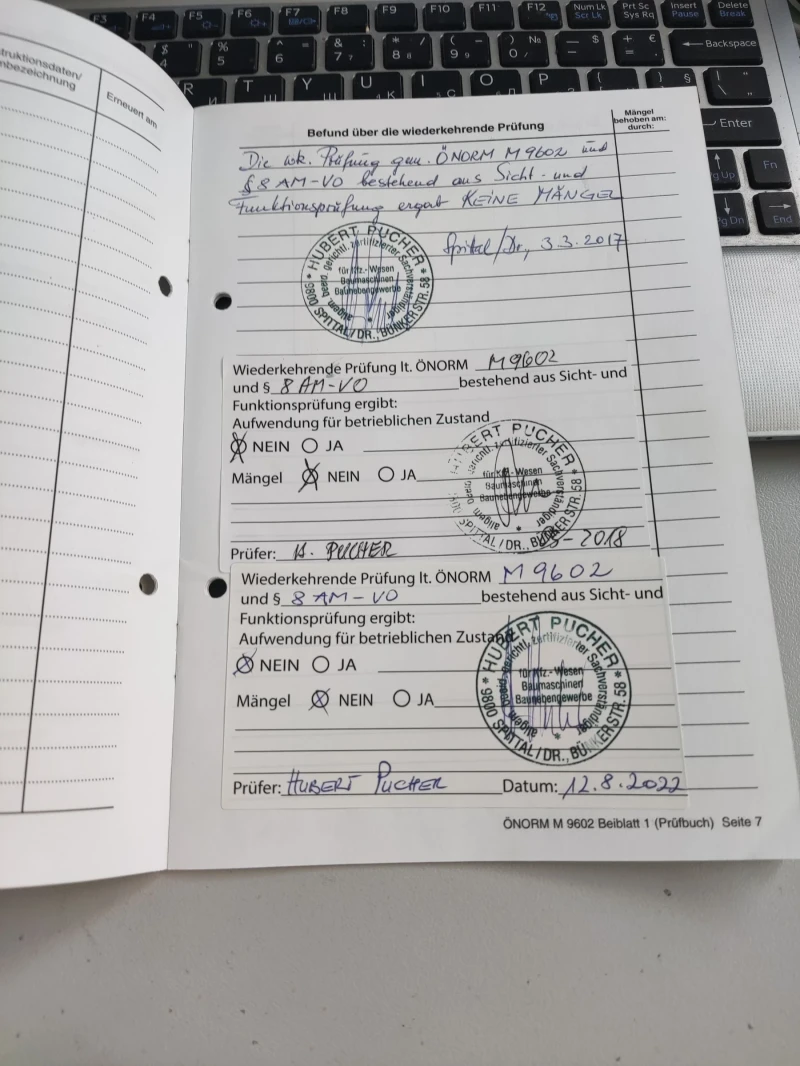 truktionsdaten/
nbezeichnung
Erneuert am
Befund über die wiederkehrende Prüfung
Mängel
behoben am:
durch:
Die wk. Prüfung gem. ÖNORM M 9602 und
§ 8 AM-VO bestehend aus Sicht- und
Funktionsprüfung ergab KEINE MÄNGEL
Spittal/Dr., 3.3.2017
* HUBERT PUCHER *
allgem. beeid. gerichtl. zertifizierter Sachverständiger
für Kfz.- Wesen
Baumaschinen
Bauhebengewerbe
9800 SPITTAL/DR., BÜNKERSTR. 58
Wiederkehrende Prüfung lt. ÖNORM M 9602
und § 8 AM-VO bestehend aus Sicht- und
Funktionsprüfung ergibt:
Aufwendung für betrieblichen Zustand
NEIN JA
Mängel NEIN JA
HUBERT PUCHER *
allgem. beeid. gerichtl. zertifizierter Sachverständiger
für Kfz.- Wesen
Baumaschinen
Bauhebengewerbe
SPITTAL/DR., BÜNKERSTR. 58
Prüfer: H. PUCHER 2018
Wiederkehrende Prüfung lt. ÖNORM M 9602
und § 8 AM-VO bestehend aus Sicht- und
Funktionsprüfung ergibt:
Aufwendung für betrieblichen Zustand
NEIN JA
Mängel NEIN JA
* HUBERT PUCHER *
allgem. beeid. gerichtl. zertifizierter Sachverständiger
für Kfz.- Wesen
Baumaschinen
Bauhebengewerbe
9800 SPITTAL/DR., BÜNKERSTR. 58
Prüfer: HUBERT PUCHER Datum: 12.8.2022
ÖNORM M 9602 Beiblatt 1 (Prüfbuch) Seite 7
F3 F4 F5 F6 F7 F8 F9 F10 F11 F12 Num Lk Scr Lk Prt Sc Sys Rq Insert Pause Delete Break
$ 4 % 5 6 & 7 * 8 ( 9 ) 0 № Backspace
R T Y U I O P
Enter
Pg Up Fn
Pg Dn End